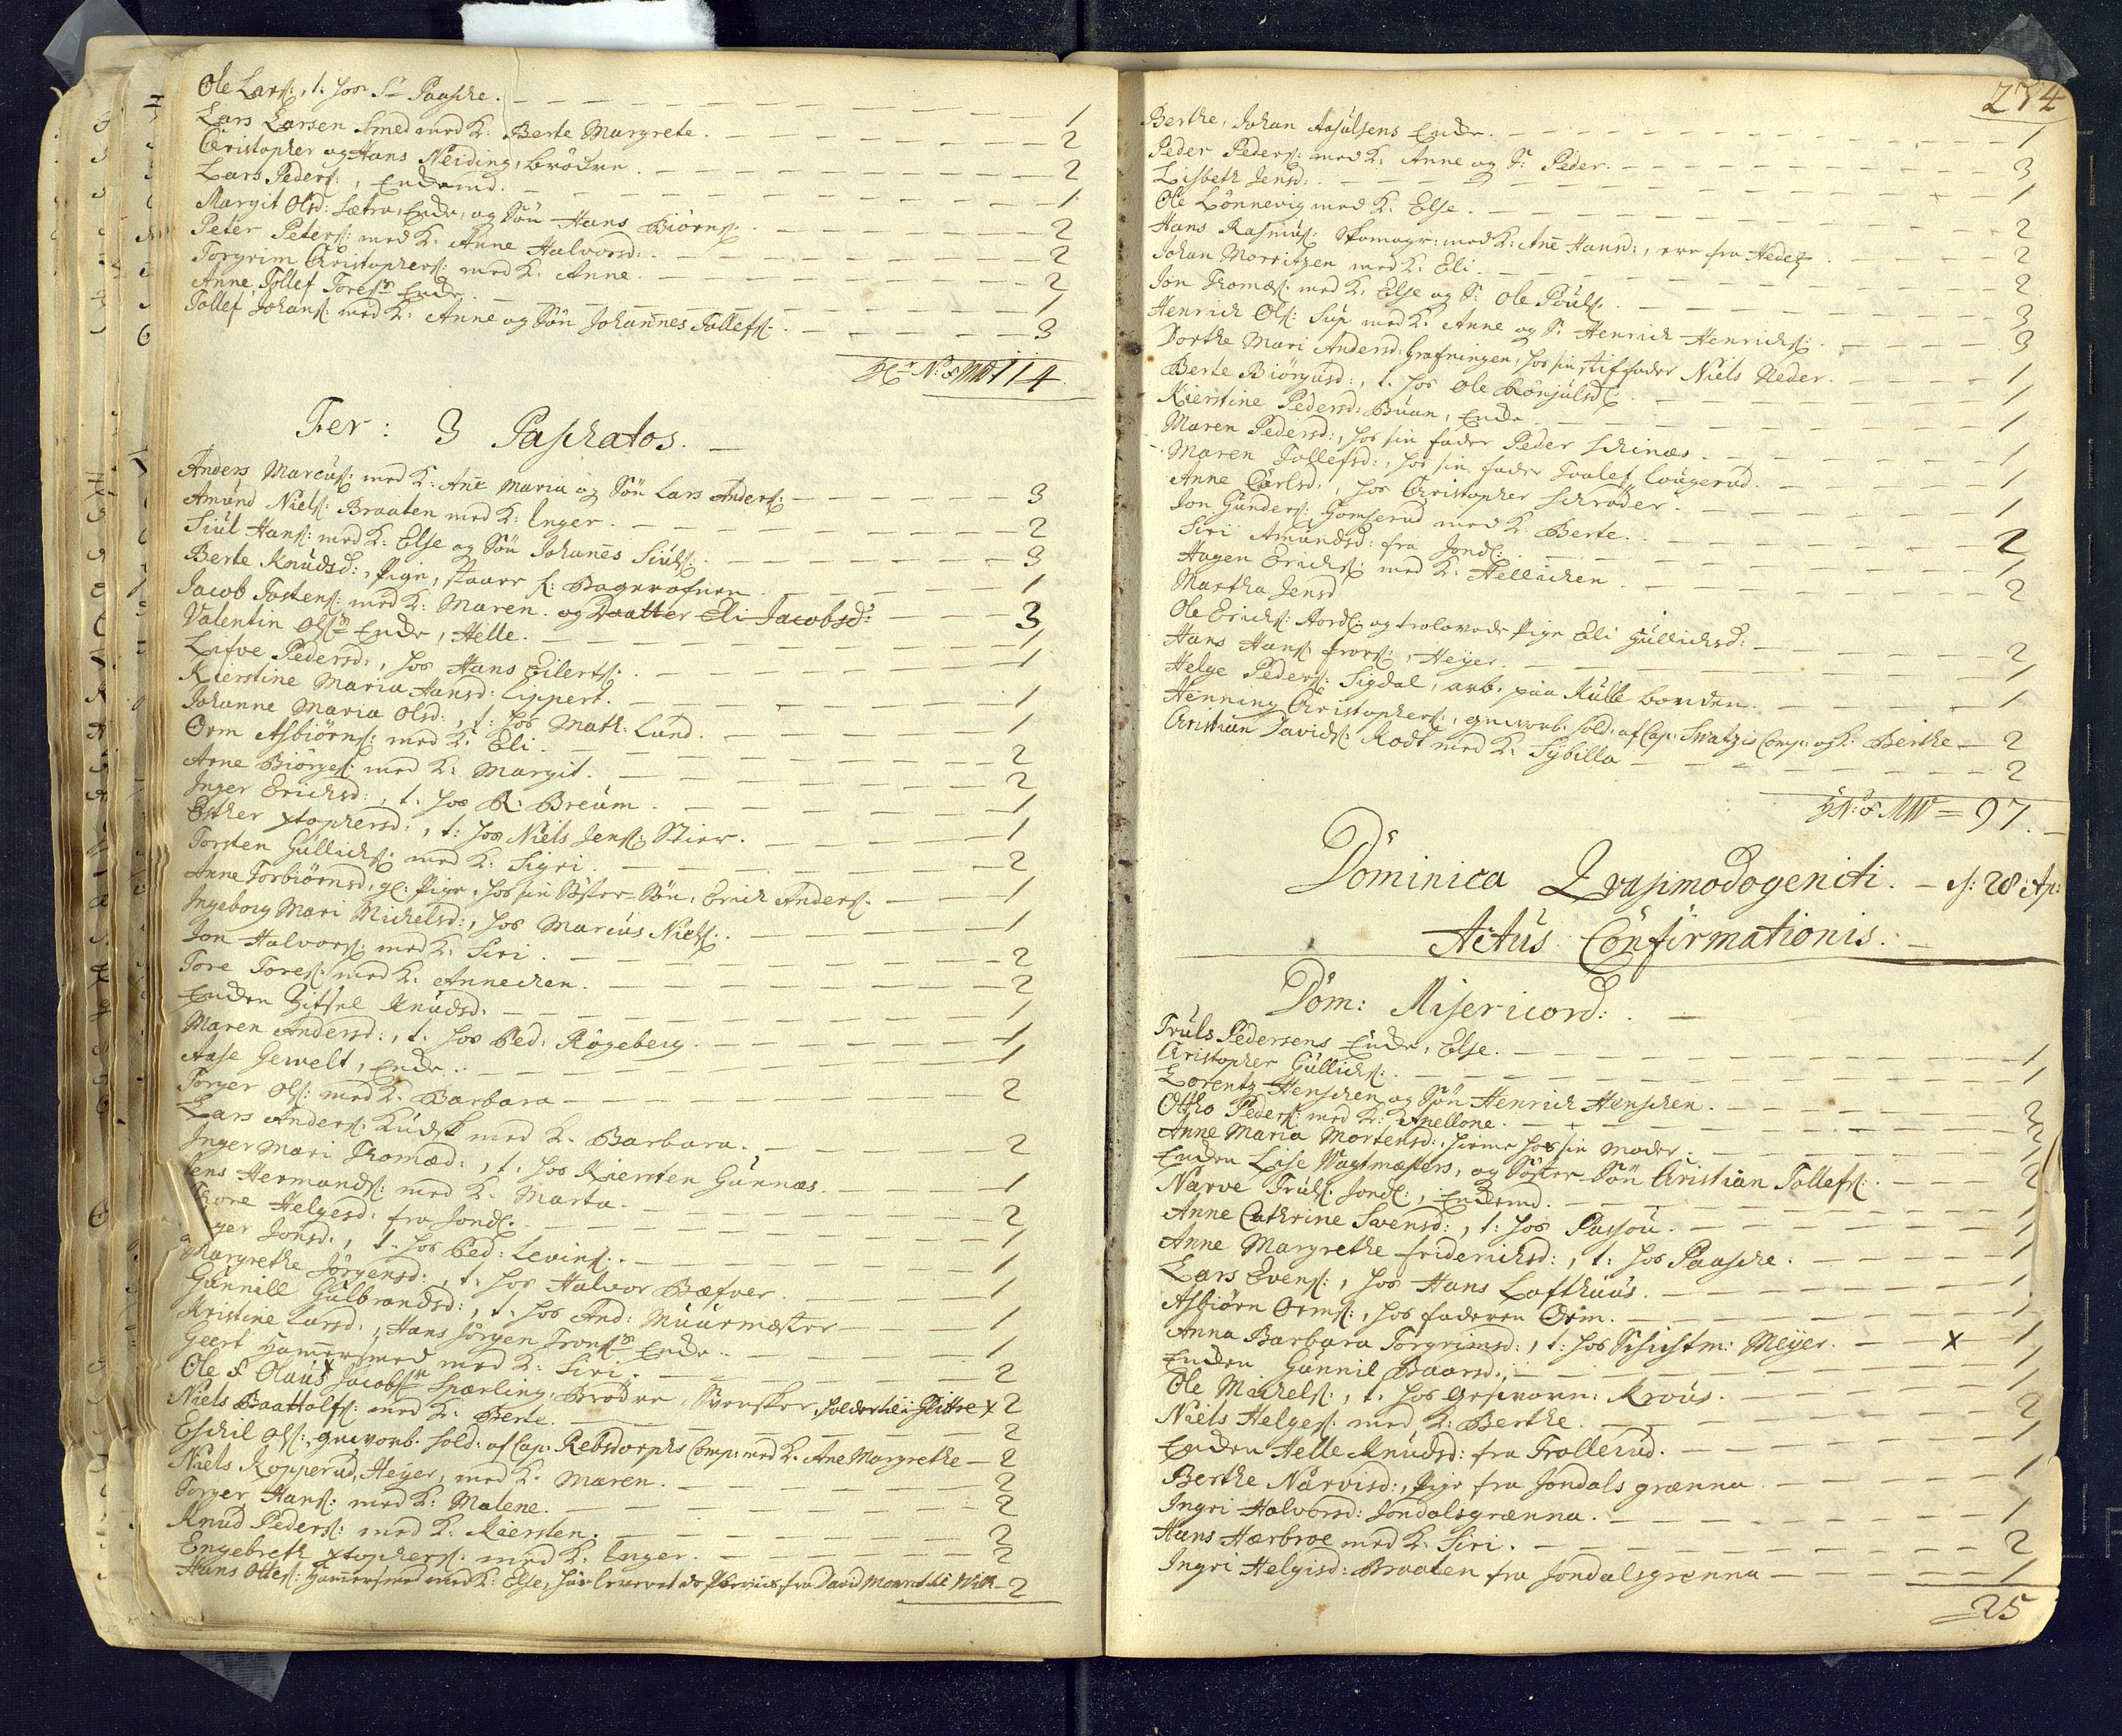 Ole Lars: , t. hos Sr Paasche. 1
Lars Larsen Smed med K: Berte Margrete. 2
Christopher og Hans Neiding, brödre 2
Lars Peders: , Enkemd. 1
Margit Olsd: Sætra, Enke, og Sön Hans Biörns: 2
Peter Peters: med K: Anne Halvorsd: 2
Torgrim Christophers: med K: Anne. 2
Anne, Tollef Toresns Enke 1
Tollef Johans: med K: Anne og Sön Johannes Tollefs: 3
114
Fer: 3 Paschatos.
Anders Marcus: med K: Ane Maria og Sön Lars Anders: 3
Amund Niels: Braaten med K: Inger. 2
Siul Hans: med K: Else og Sön Johanes Siuls: 3
Berte Knudsd: , Pige, 1
Jacob Tostens: med K: Maren. og Daatter Eli Jacobsd: 3
Valentin Olsns Enke, Helle. 1
Lisve Pedersd: , hos Hans Eilerts: 1
Kierstine Maria Hansd: Lippert. 1
Johanne Maria Olsd: , t: hos Math: Lund. 1
Orm Asbiörns: med K: Eli. 2
Arne Biörges: med K: Margit. 2
Inger Erichsd: , t. hos R: Breum. 1
Esther xtophersd: , t: hos Niels Jens: Stier. 1
Torsten Gullichs: med K: Sigri. 2
Anne Torbiörnsd, gl: Pige, hos sin Söster Sön, Erich Anders: 1
Ingeborg Mari Michelsd: , hos Marcus Niels: 1
Jon Halvors: med K: Siri. 2
Tore Tores: med K: Annechen. 2
Enken Zitsel Knudsd. 1
Maren Andersd: , t. hos Ped: Rögeberg. 1
Aase Gewelt, Enke. 1
Torger Ols: med K: Barbara 2
Lars Anders: Kudsk med K: Barbara. 2
Inger Mari Thomæd: , t. hos Kiersten Gunnas. 1
Jens Hermands: med K. Marta. 2
Thore Helgesd: fra Jond: 1
Inger Jonsd: , t. hos Ped: Levins: 1
Margrethe Jörgensd: , t: hos Halvor Bæfver. 1
Gunnill Gulbrandsd: , t. hos And: Muurmæster 1
Kristine Larsd: , Hans Jörgen Tronsns Enke. 1
Geert Hamersmed med K: Siri. 2
Ole & Olaus Jacobsn Spærling, Brödre, Svensker, x 2
Niels Baattolfs: med K: Berte. 2
Eschil Ols: , gevorb. Sold: af Cap. Rebsdorphs Comp: med K: Ane Margrethe 2
Niels Kopperud, Heyer, med K. Maren. 2
Torger Hans: med K: Malene. 2
Knud Peders: med K: Kiersten. 2
Engebreth xtophers: med K: Inger. 2
Hans Ottes: Hamersmed med K: Else, fra David 2
274
Berthe, Johan Aasulsens Enke. 1
Peder Peders: med K: Anne og S: Peder. 3
Lisbeth Jensd: 1
Ole Lönnevig med K: Else. 2
Hans Rasmus: Skomagr: med K: Ane Hansd: , ere fra Heden 2
Johan Morritzen med K: Eli. 2
Jon Thomæs: med K: Else og S: Ole Pouls: 3
Henrich Ols: Sup med K: Anne og S: Henrich Henrichs: 3
Dorthe Mari Andersd: Grafningen, hos sin stiffader Niels Reder. 1
Berte Biörgusd: , t. hos Ole Rönjulsd: 1
Kierstine Pedersd: Buan, Enke 1
Maren Pedersd: , hos sin fader Peder Schinæs. 1
Maren Tollefsd: , hos sin fader Toolef Lougerud. 1
Anne Carlsd: , hos Christopher Schröder. 1
Jon Gunders: Gomserud med K. Berte. 2
Siri Amundsd: fra Jond: 1
Hagen Erichs: med K: Hellichen 2
Martha Jensd
Ole Erichs: og trolovede Pige Eli Gullichsd: 2
Hans Hans: , Heyer. 1
Helge Peders: Sigdal, arb. paa Kulle bonden. 1
Henning Christophers: , gevorb. Sold: af Cap: Swatzis Comp: og K: Berthe 2
Christian Davids: Rodt med K. Sybilla 2
97.
Dominica Qvasimodogeniti. d: 28 Ap:
Actus Confirmationis.
Dom: Misericord:
Truls Pedersens Enke, Else. 1
Christopher Gullichs: 1
Lorentz Henschen og Sön Henrich Henschen. 2
Ottho Peders: med K: Apellone. 2
Anne Maria Mortensd: , hiemme hos sin Moder. 1
Enken Lise Wagtmæsters, og Söster Sön Christian Tollefs: 2
Narve Truls: Jond: , Enkemd. 1
Anne Cathrine Svensd: , t: hos Passou. 1
Anne Margrethe Friderichsd: , t: hos Paasche. 1
Lars Evens: , hos Hans Lofthuus. 1
Asbiörn Orms: , hos faderen Orm. 1
Anna Barbara Torgrimsd: , t: hos Schichtm: Meyer. x 1
Enken Gunnil Baarsd: 1
Ole Michels: , t. hos Gesvorn: Krous. 1
Niels Helges: med K: Berthe. 2
Enken Helle Knudsd: fra Trollerud. 1
Berthe Narvisd: , Pige fra Jondals grænna. 1
Ingri Halvorsd: Jondalsgrænna. 1
Hans Hærbroe med K: Siri. 2
Ingri Helgisd: Braaten fra Jondalsgrænna 1
25